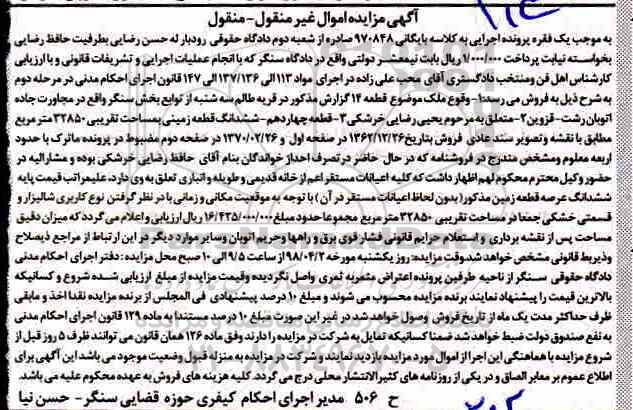 آگهی مزایده اموال غیر منقول - منقول
به موجب یک فقره پرونده اجرایی به کلاسه بایگانی ۹۷۰۸۴۸ صادره از شعبه دوم دادگاه حقوقی رودبار له حسن رضایی بطرفیت حافظ رضایی
بخواسته نهایت پرداخت ۱/۰۰۰/۰۰۰ ریال بابت نیمعشر دولتی واقع در دادگاه سنگر که با انجام عملیات اجرایی و تشریفات قانونی و با ارزیابی
کارشناس اهل فن ومنتخب دادگستری آقای محب علی زاده در اجرای مواد ۱۱۳ الی ۱۳۶/ ۱۳۷ الی ۱۴۷ قانون اجرای احکام مدنی در مرحله دوم
به شرح ذیل به فروش می رسد: ۱- وقوع ملک موضوع قطعه ۱۴ گزارش مذکور در قریه طالم سه شنبه از توابع بخش سنگر واقع در مجاورت جاده
اتوبان رشت - قزوین ۲- متعلق به مرحوم یحیی رضایی خرشکی ۳- قطعه چهاردهم - ششدانگ قطعه زمینی به مساحت تقریبی ۳۲۸۵۰ متر مربع
مطابق با نقشه و تصویر سند عادی فروش بتاریخ ۱۳۶۲/۱۲/۲۶ در صفحه اول و ۱۳۷۰/۰۲/۲۶ در صفحه دوم مضبوط در پرونده ماترک با حدود
اربعه معلوم ومشخص مندرج در فروشنامه که در حال حاضر در تصرف احداز خواندگان بنام آقای حافظ رضایی خرشکی بوده و مشارالیه در
حضور وکیل محترم محکوم لهم اظهار داشت که کلیه اعیانات مستقر اعم از خانه قدیمی و طویله و انباری تعلق به وی دارد، علیهراتب قیمت پایه
ششدانگ عرصه قطعه زمین مذکور (بدون لحاظ اعیانات مستقر در آن) با توجه به موقعیت مکانی و زمانی با در نظر گرفتن نوع کاربری شالیزار و
قسمتی خشکی جمعا در مساحت تقریبی ۳۲۸۵۰ متر مربع مجموعا حدود مبلغ ۱۶/۴۲۵/۰۰۰/۰۰۰ ریال ارزیابی و اعلام می گردد که میزان دقیق
مساحت پس از نقشه برداری و استعلام حرایم قانونی فشار قوی برق و راهها وحریم اتوبان وسایر موارد دیگر در این ارتباط از مراجع ذیصلاح
وذیربط قانونی مشخص خواهد شد.وقت مزایده: روز یکشنبه مورخه ۹۸/۰۴/۲ از ساعت ۹/۵ الی ۱۰ صبح محل مزایده : دفتر اجرای احکام مدنی
دادگاه حقوقی سنگر از ناحیه طرفین پرونده اعتراض مثمر به ثمری واصل نگردیده وقیمت مزایده از مبلغ ارزیابی شده شروع و کسانیکه
بالاترین قیمت را پیشنهاد نمایند برنده مزایده محسوب می شوند و مبلغ ۱۰ درصد پیشنهادی فی المجلس از برنده مزایده نقدا اخذ و مابقی
ظرف حداکثر مدت یک ماه از تاریخ فروش وصول خواهد شد در غیر این صورت مبلغ ۱۰ درصد مستندا به ماده ۱۲۹ قانون اجرای احکام مدنی
به نفع صندوق دولت ضبط خواهد شد ضمنا کسانیکه تمایل به شرکت در مزایده را دارند وفق ماده ۱۲۶ همان قانون می توانند ظرف ۵ روز قبل از
شروع مزایده با هماهنگی این اجرا از اموال مورد مزایده بازدید نمایند و شرکت در مزایده به منزله قبول وضعیت موجود می باشد این آگهی برای
اطلاع عموم بر معابر الصاق و در یکی از روزنامه های کثیرالانتشار محلی درج می گردد. کلیه هزینه های فروش به عهده محکوم علیه می باشد.
ح ۵۰۶ مدیر اجرای احکام کیفری حوزه قضایی سنگر - حسن نیا